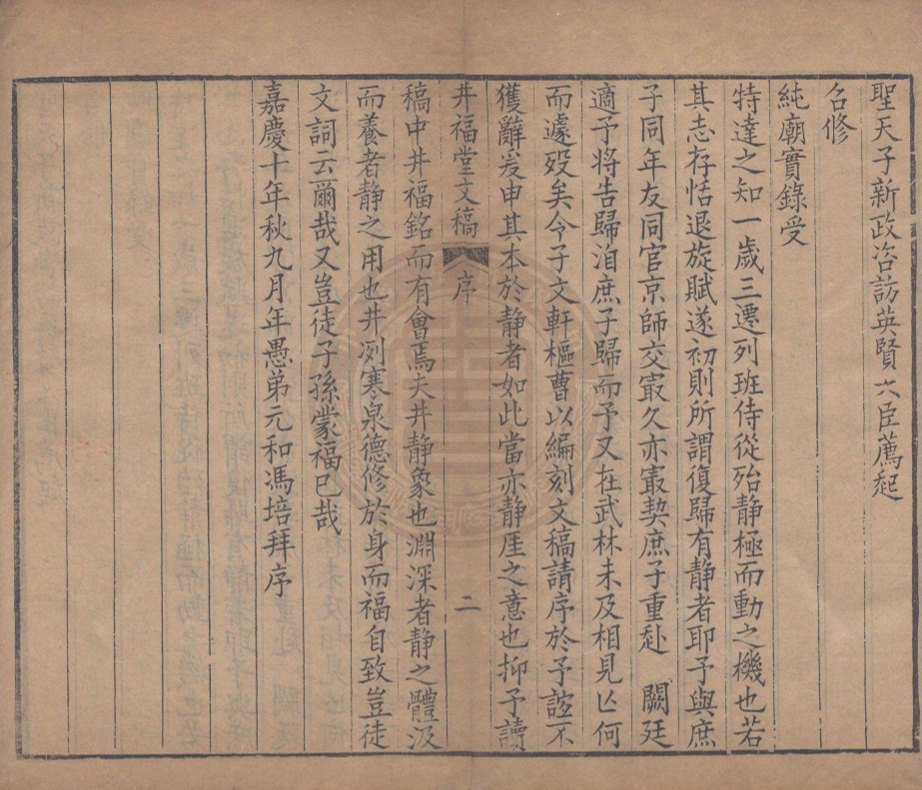 聖天子新政咨訪英賢大臣薦起
召修
純廟實錄受
特達之知一歲三遷列班侍從殆静極而動之機也若
其志存恬退旋賦遂初則所謂復歸有静者耶予與庶
子同年友同官京師交㝡久亦㝡契庶子重赴 闕廷
適予將告歸洎庶子歸而予又在武林未及相見亾何
而遽歿矣令子文軒樞曹以編刻文稿請序於予誼不
獲辭爰申其本於静者如此當亦静厓之意也抑予讀
井福堂文稿 序 二
稿中井福銘而有會焉夫井静象也淵深者静之體汲
而養者静之用也井冽寒泉德修於身而福自致豈徒
文詞云爾哉又豈徒子孫蒙福已哉
嘉慶十年秋九月年愚弟元和馮培拜序